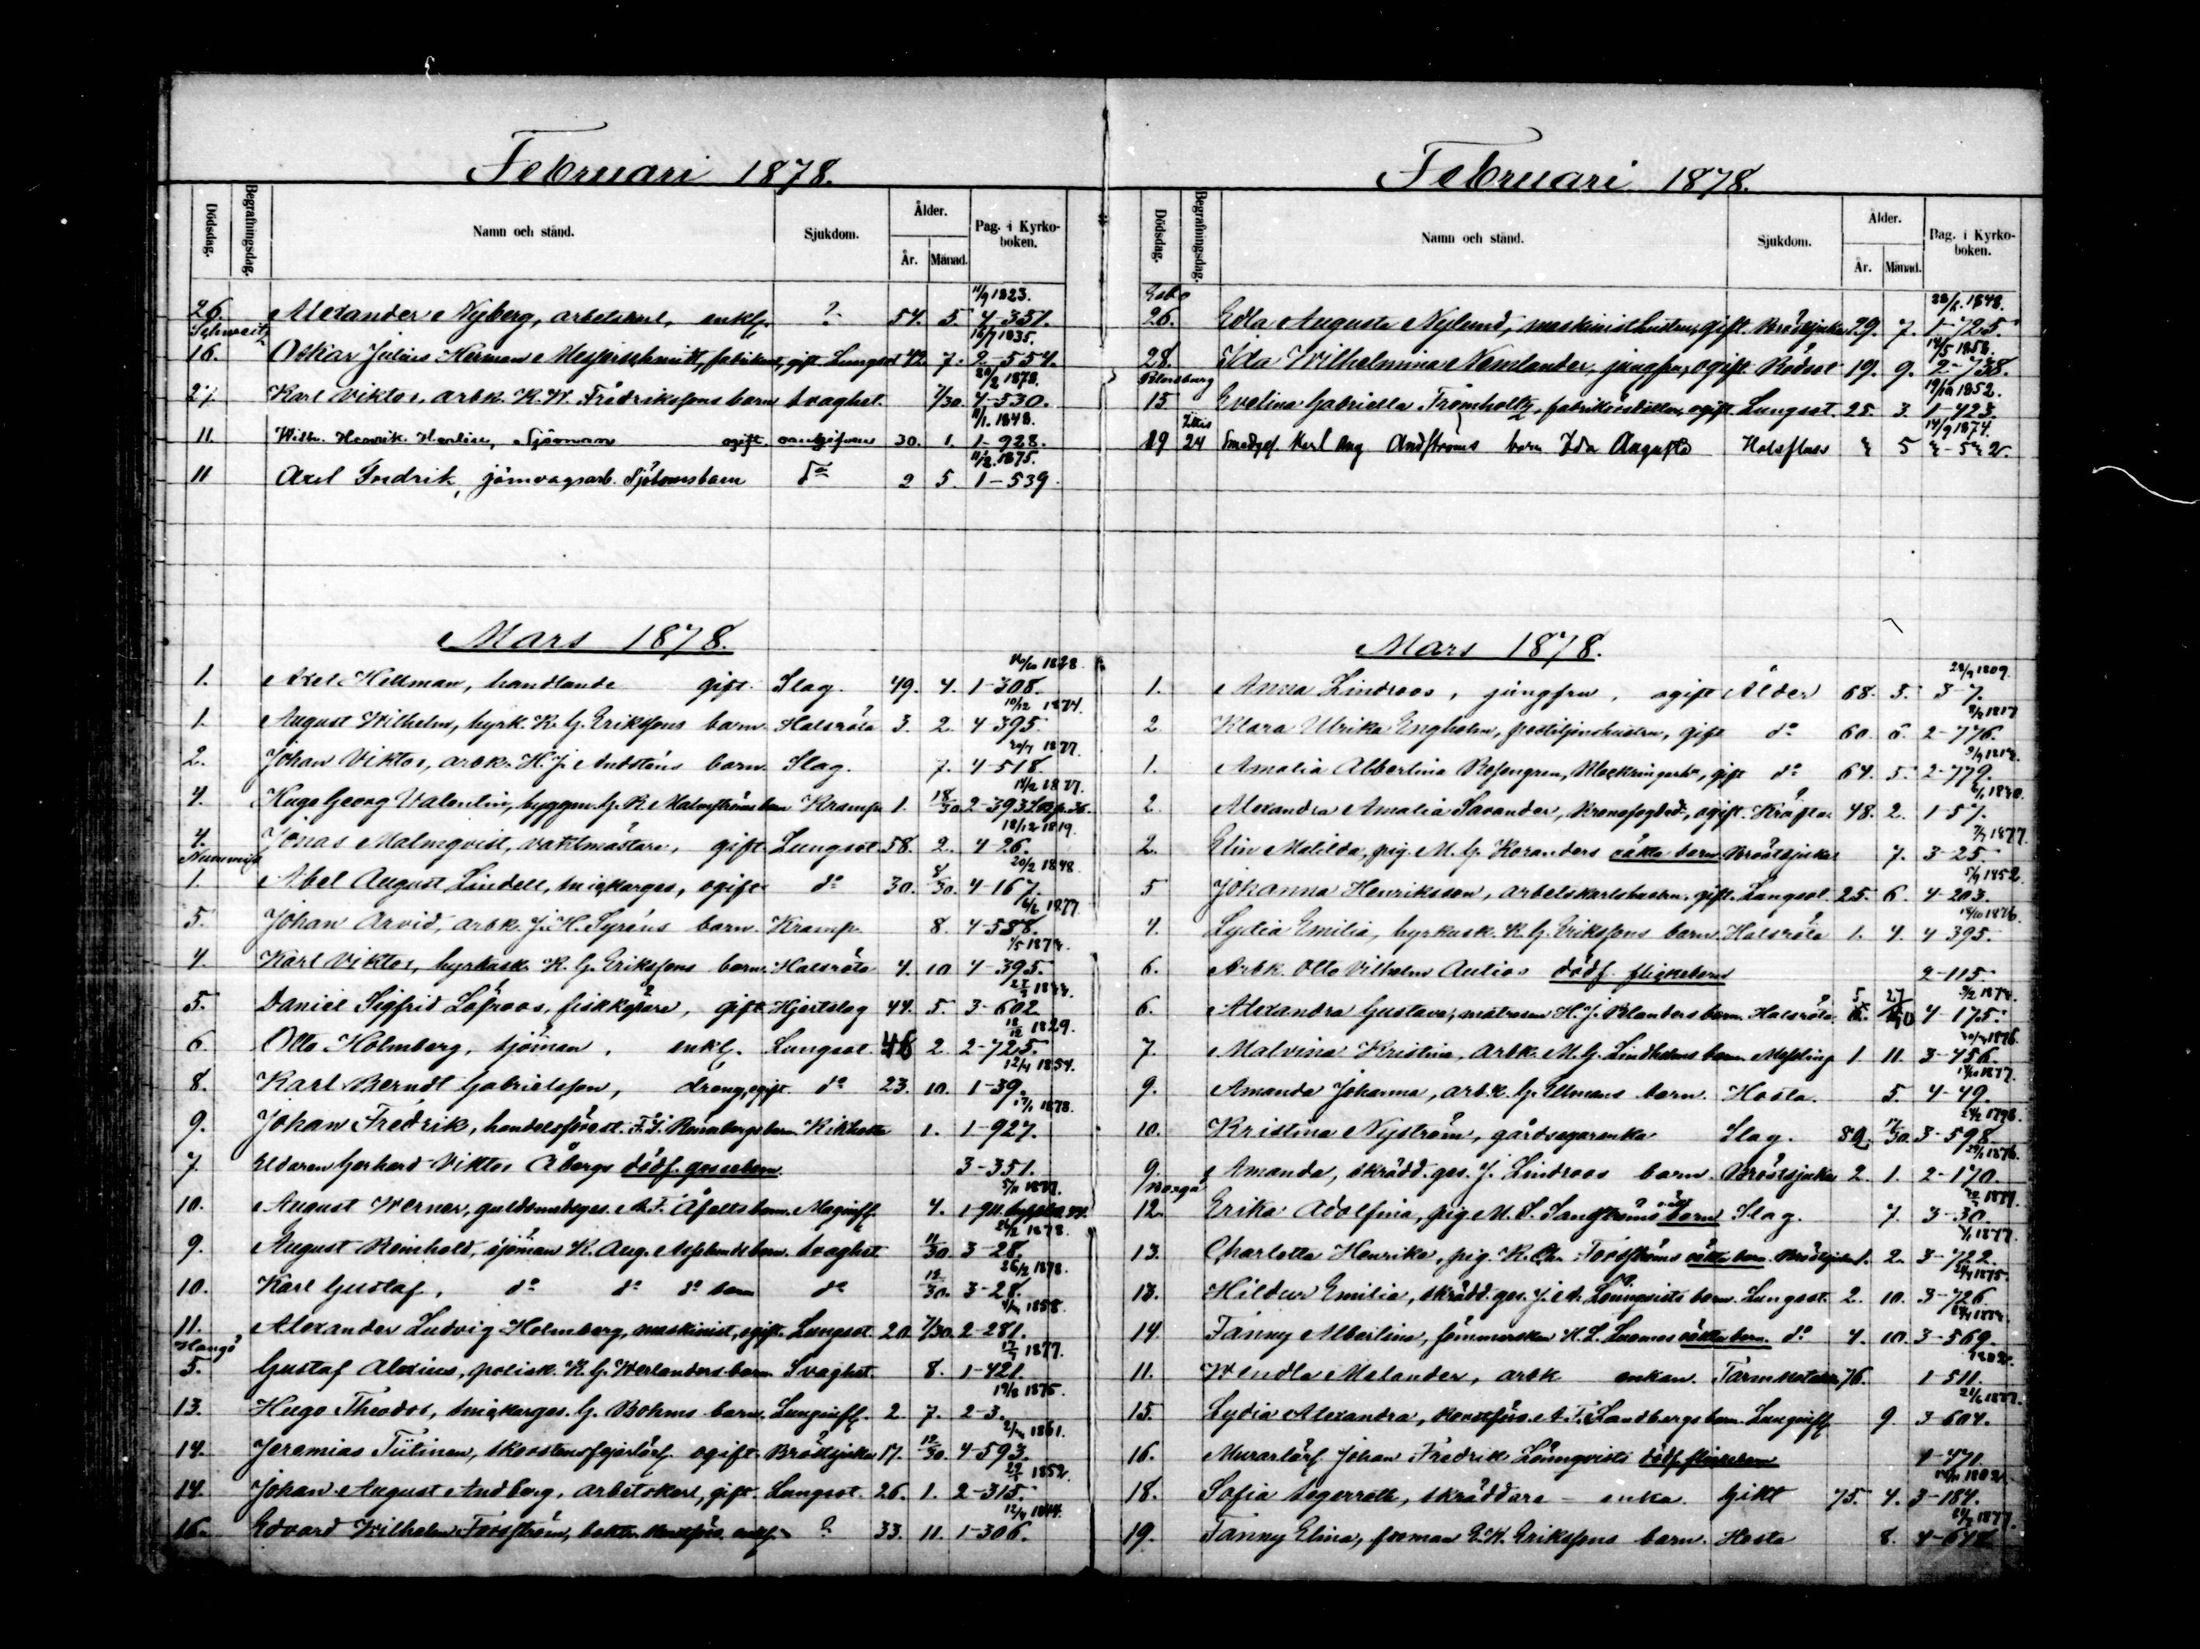 Februari 1878.
Dödsdag. Begrafningsdag. Namn och stånd. Sjukdom. Ålder. År. Månad. Pag. i Kyrkoboken.
11/9 1823.
26. Alexander Nyberg, arbetskarl, enkl. ? 54. 5. 4-351.
Schweitz 16/7 1835.
16. Oskar Julius Herman Messerschmitt, fabrikant, gift Lungsot 42. 7. 2-554.
20/2 1878.
27. Karl Viktor, arbk. K. W. Fredrikssons barn Svaghet. 7/30. 4-530.
11/1. 1848.
11. Wilh. Henrik Herlin, Sjöman ogift 30. 1. 1-928.
11/2. 1875.
11 Axel Fredrik, jernvagsarb. Sjöbloms barn do 2 5. 1-539.
Mars 1878.
10/10 1828.
1. Axel Hellman, handlande gift. Slag. 49. 4. 1-308.
10/12 1874.
1. August Wilhelm, hyrk. K. G. Erikssons barn Halsröta 3. 2. 4-395.
20/7 1877.
2. Johan Viktor, arbk. H. J. Andsténs barn. Slag. 7. 4-518.
14/2 1877.
4. Hugo Georg Valentin, byggm. G. R. Malmströms barn Kramp. 1. 18/30 2-393
18/12 1819.
4. Jonas Malmqvist, vaktmästare, gift Lungsot 58. 2. 4-26.
20/2 1848.
1. Abel August Lindell, snickarges, ogift do 30. 8/30. 4-167.
6/6 1877.
5. Johan Arvid, arbk. J. H. Syréns barn. Kramp. 8. 4-588.
1/5 1873.
4. Karl Viktor, hyrkusk K. G. Erikssons barn. Halsröta 4. 10 4-395.
5. Daniel Sigfrid Löfroos, fiskköpare, gift Hjertslag 44. 5. 3-602
18/12 1829.
6. Otto Holmberg, sjöman, enkl. Lungsot 48 2. 2-725.
12/4 1854.
8. Karl Berndt Gabrielsson, dreng, ogift. do 23. 10. 1-39.
17/1 1878.
9. Johan Fredrik, handelsförest. F. I. Rönnbergs barn Kikhosta 1. 1-927.
7. Eldaren Gerhard Viktor Åbergs dödf. gossebarn. 3-351.
5/11 1877.
10. August Werner, guldsmedsges. A. F. Åfelts barn. Maginfl. 4.
26/2 1878.
9. August Reinhold, sjöman K. Aug. Asplunds barn. Svaghet 11/30 3-28.
26/2 1878.
10. Karl Gustaf, do do do barn do 12/30. 3-28.
11. Alexander Ludvig Holmberg, maskinist, ogift. Lungsot. 20. 7/30. 2-281.
Hangö 12/7 1877.
5. Gustaf Alexius, polisk. K. G. Werlanders barn Svaghet. 8. 1-421.
19/8 1875.
13. Hugo Theodor, snickarges. G. Bohms barn. Lunginfl. 2. 7. 2-3.
14. Jeremias Tiitinen, skorstensfejarlärl. ogift. Bröstsjuka 17. 12/30. 4-593.
1852.
14. Johan August Andberg, arbetskarl, gift. Lungsot. 26. 1. 2-315
12/4 1844.
16. Edvard Wilhelm Forsström, enkl. ? 33. 11. 1-306.
Februari 1878.
Dödsdag. Begrafningsdag. Namn och stånd. Sjukdom. Ålder. År. Månad. Pag. i Kyrkoboken.
Esbo 1848.
26. Edla Augusta Nylund, maskinisthustru, gift. Bröstsjuka 29. 7. 1-725.
14/5 1858.
28. Ida Wilhelmina Nemlander, jungfru, ogift. Rödsot 19. 9. 2-738.
Petersburg 19/10 1852.
15. Evelina Gabriella Fromholtz, ogift. Lungsot. 25. 3. 1-423.
14/9 1874.
19 24 Smedges. Karl Aug Andströms barn Ida Augusta Halsfluss 5
Mars 1878.
28/9 1809.
1. Anna Lindroos, jungfru, ogift Ålder 68. 5. 3-7.
1817
2. Klara Ulrika Engholm, postiljonshustru, gift do 60. 6. 2-776.
1. Amalia Albertina Rosengren, gift do 64. 5. 2-779.
1830.
2. Alexandra Amalia Savander, ogift. Kräftor 48. 2. 1-57.
7/7 1877.
2. Elin Matilda, pig. M. G. Koranders oäkta barn Bröstsjuka 7. 3-25.
5/9 1852.
5 Johanna Henriksson, arbetskarlshustru, gift. Lungsot. 25. 6. 4-203.
1876.
4. Lydia Emilia, hyrkusk. K. G. Erikssons barn. Halsröta 1. 4. 4-395.
6. Arbk. Otto Vilhelm Autios dödf. flickebarn 2-115
6. Alexandra Gustava, matrosen H. J. Blanders barn. Halsröta 5 4-175.
1876.
7. Malvina Kristina, arbk. M. G. Lindholms barn. Messling 1. 11. 3-456.
1877.
9. Amanda Johanna, arbk. G. Ullmans barn. Hosta. 5. 4-49.
1798.
10. Kristina Nyström, gårdsegarenka Slag. 80. 17/30. 3-598.
1876.
9. Amanda, skrädd. ges. J. Lindroos barn. Bröstsjuka 2. 1. 2-170.
Borgå 1877.
12. Erika Adolfina, pig. M. S. Sandströms oäkt barn Slag. 7. 3-30.
1877.
13. Charlotta Henrika, pig. K. Ch. Forsströms oäkta barn. Bröstsjuka 1. 2. 3-722.
1875.
13. Hildur Emilia, skrädd. ges. J. A. Lönnqvists barn. Lungsot. 2. 10. 3-726.
14. Fanny Albertina, sömmerskan H. L. Luomas oäkta barn. do 4. 10. 3-569.
11. Wendla Malander, arbk enkan. 76. 1-511.
1877.
15. Lydia Alexandra, A. F. Sandbergs barn. Lunginfl. 9. 3-604.
16. Murarlärl. Johan Fredrik Lönnqvists dödf. flickebarn 4-471.
1802.
18. Sofia Segerroth, skräddare-enka. Gikt 75. 4. 3-184.
1877.
19. Fanny Elina, forman E. W. Erikssons barn. Hosta 8. 4-648